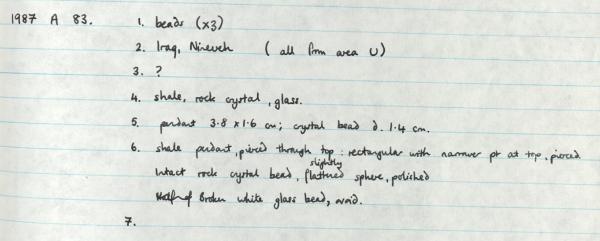 1987 A 83. 1. beads (x3)
2. Iraq, Nineveh ( all from area U)
3. ?
4. shale, rock crystal, glass.
5. pendant 3.8 x 1.6 cm; crystal bead d. 1.4 cm.
6. shale pendant, pierced through top : rectangular with narrower pt at top, pierced
slightly
Intact rock crystal bead, flattened sphere, polished
Half of Broken white glass bead, ovoid.
7.